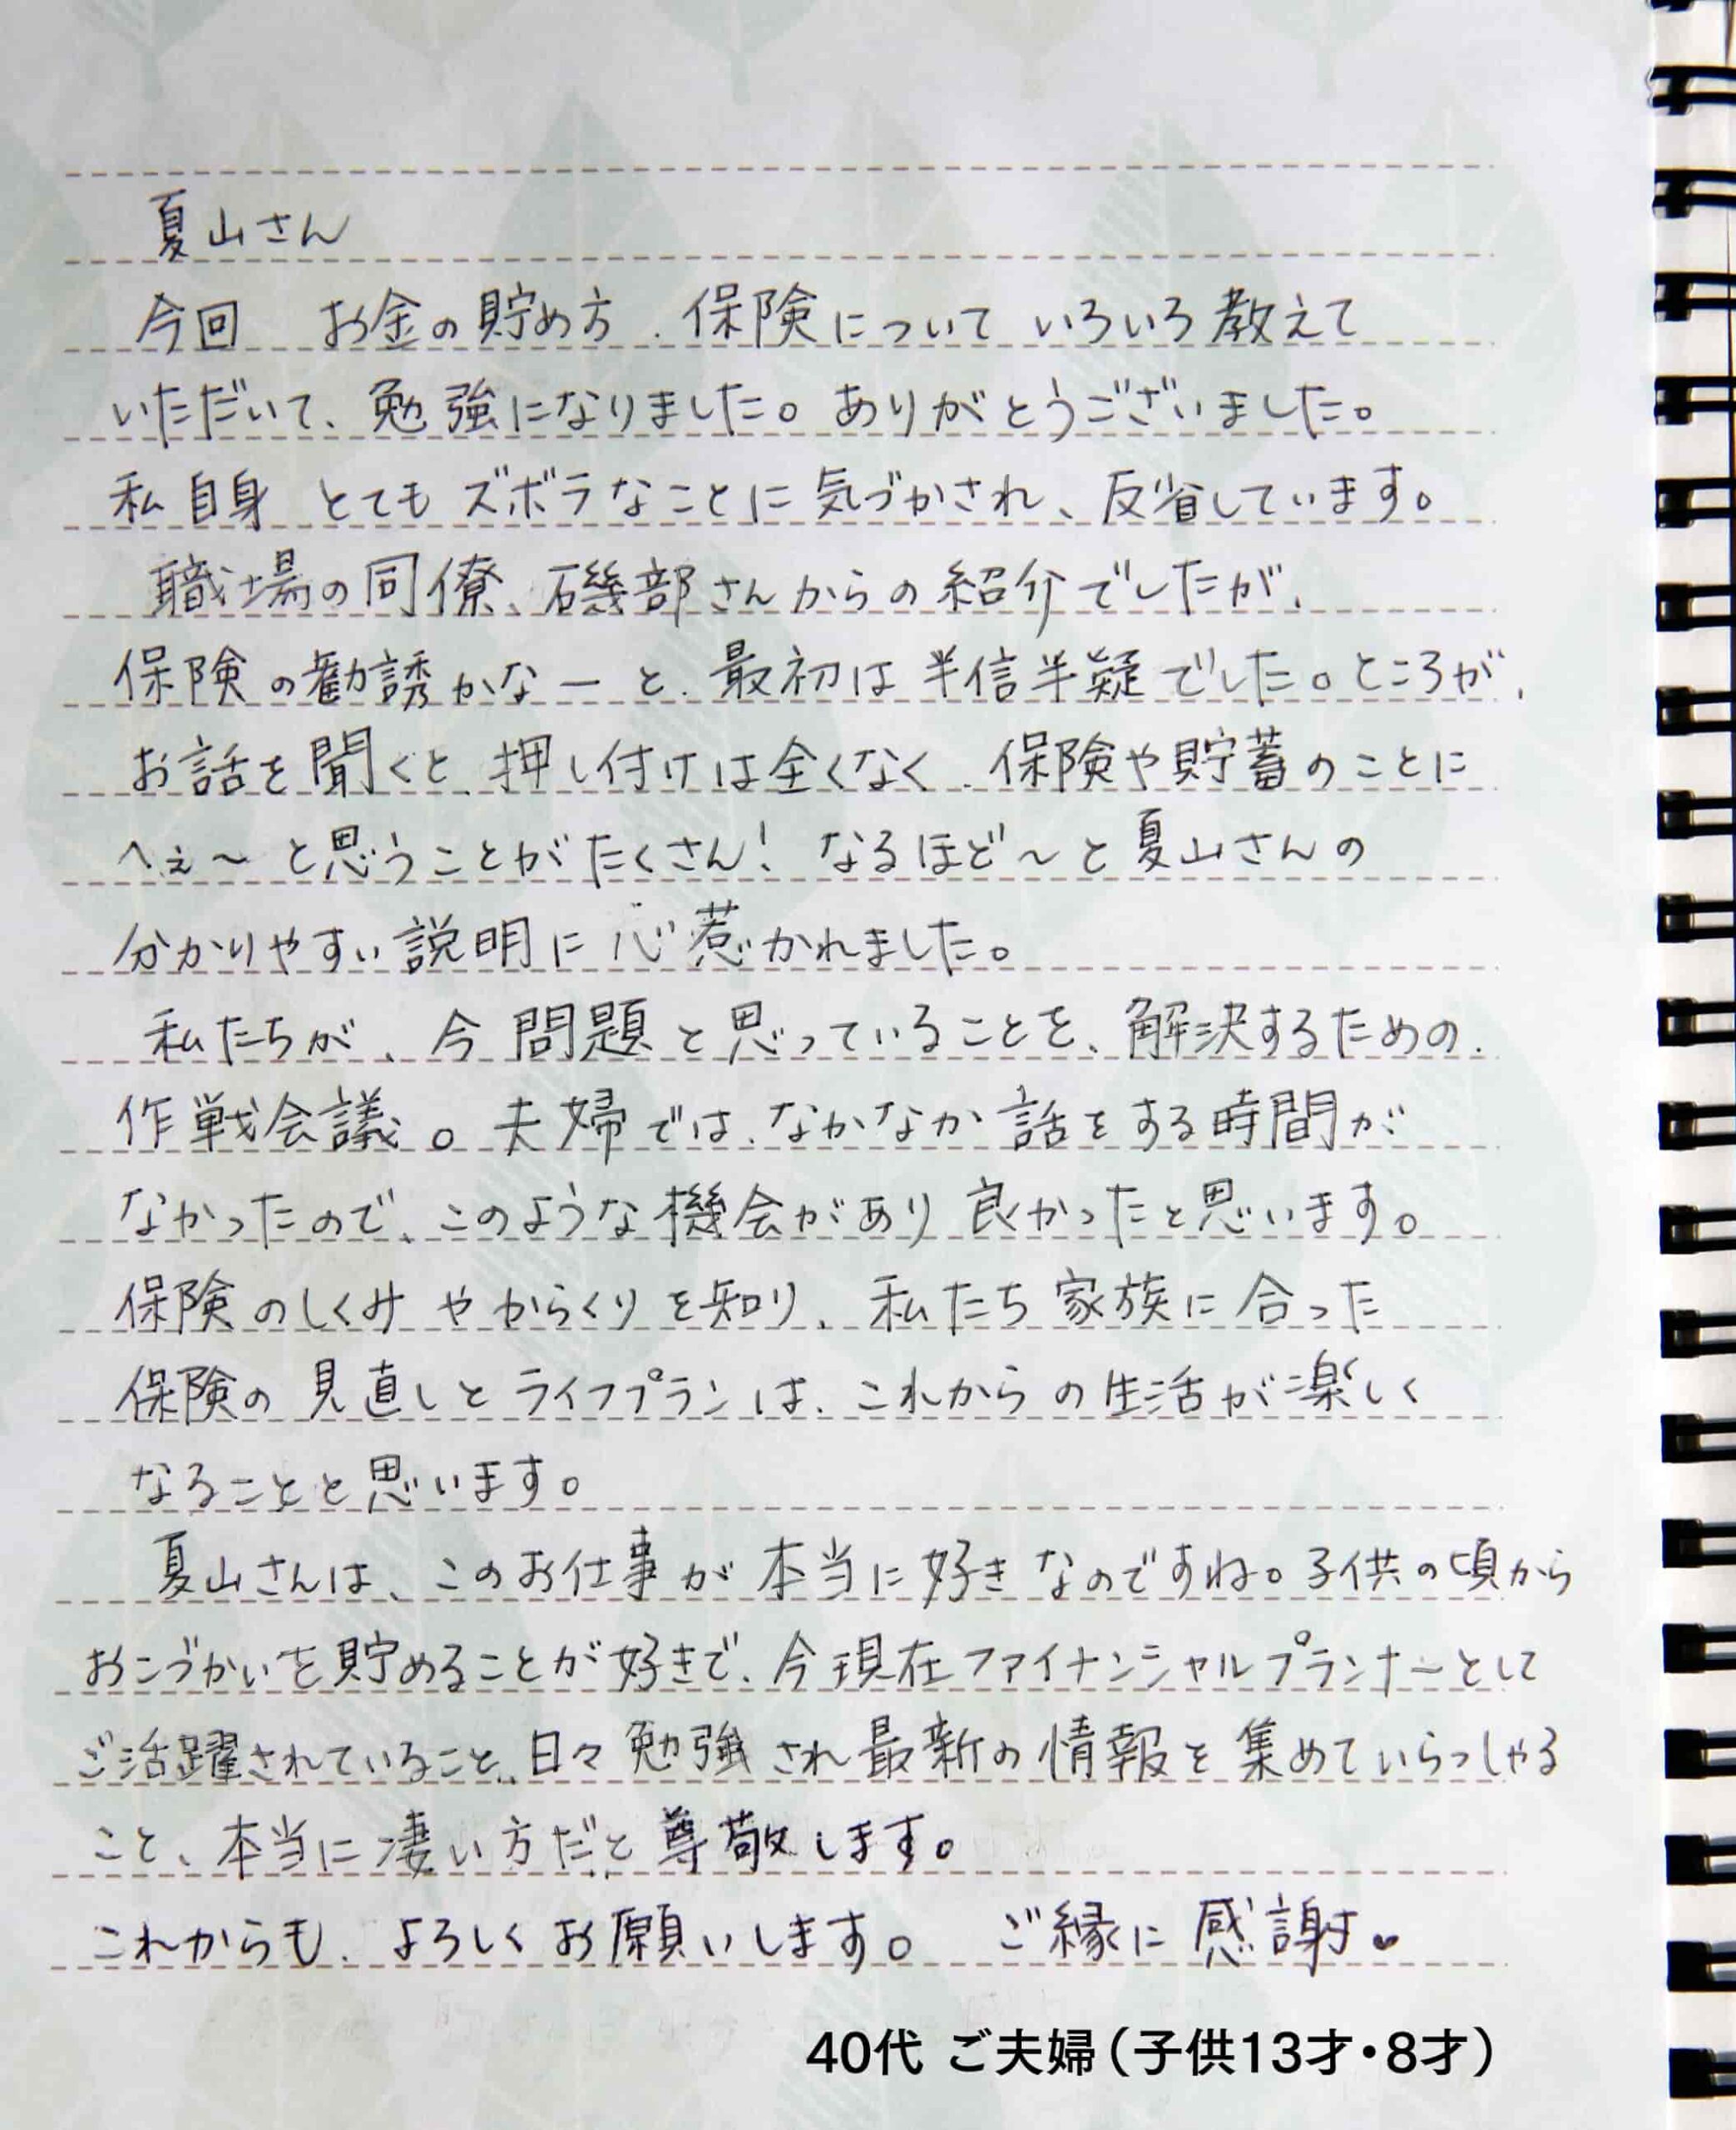 夏山さん
今回 お金の貯め方、保険について いろいろ教えて
いただいて、勉強になりました。ありがとうございました。
私自身 とても ズボラなことに気づかされ、反省しています。
職場の同僚、磯部さんからの紹介でしたが、
保険の勧誘かなーと、最初は半信半疑でした。ところが、
お話を聞くと、押し付けは全くなく、保険や貯蓄のことに
へぇ〜と思うことがたくさん！なるほど〜と夏山さんの
分かりやすい説明に心惹かれました。
私たちが、今問題と思っていることを、解決するための、
作戦会議。夫婦では、なかなか話をする時間が
なかったので、このような機会があり良かったと思います。
保険のしくみやからくりを知り、私たち家族に合った
保険の見直しとライフプランは、これからの生活が楽しく
なることと思います。
夏山さんは、このお仕事が本当に好きなのですね。子供の頃から
おこづかいを貯めることが好きで、今現在ファイナンシャルプランナーとして
ご活躍されていること、日々勉強され最新の情報を集めていらっしゃる
こと、本当に凄い方だと尊敬します。
これからも、よろしくお願いします。 ご縁に感謝♥
40代 ご夫婦（子供13才・8才）